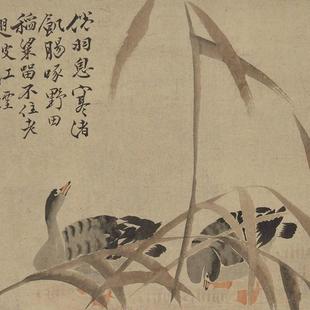 倦羽息寒渚
飢腸啄野田
稻粱留不住老
江